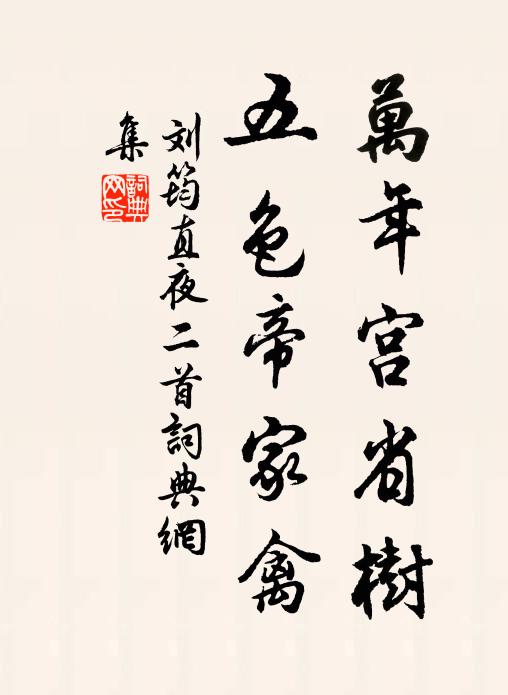 萬年宫省樹
五色帝家禽
刘筠直夜二首詞典網
集
詞典網印